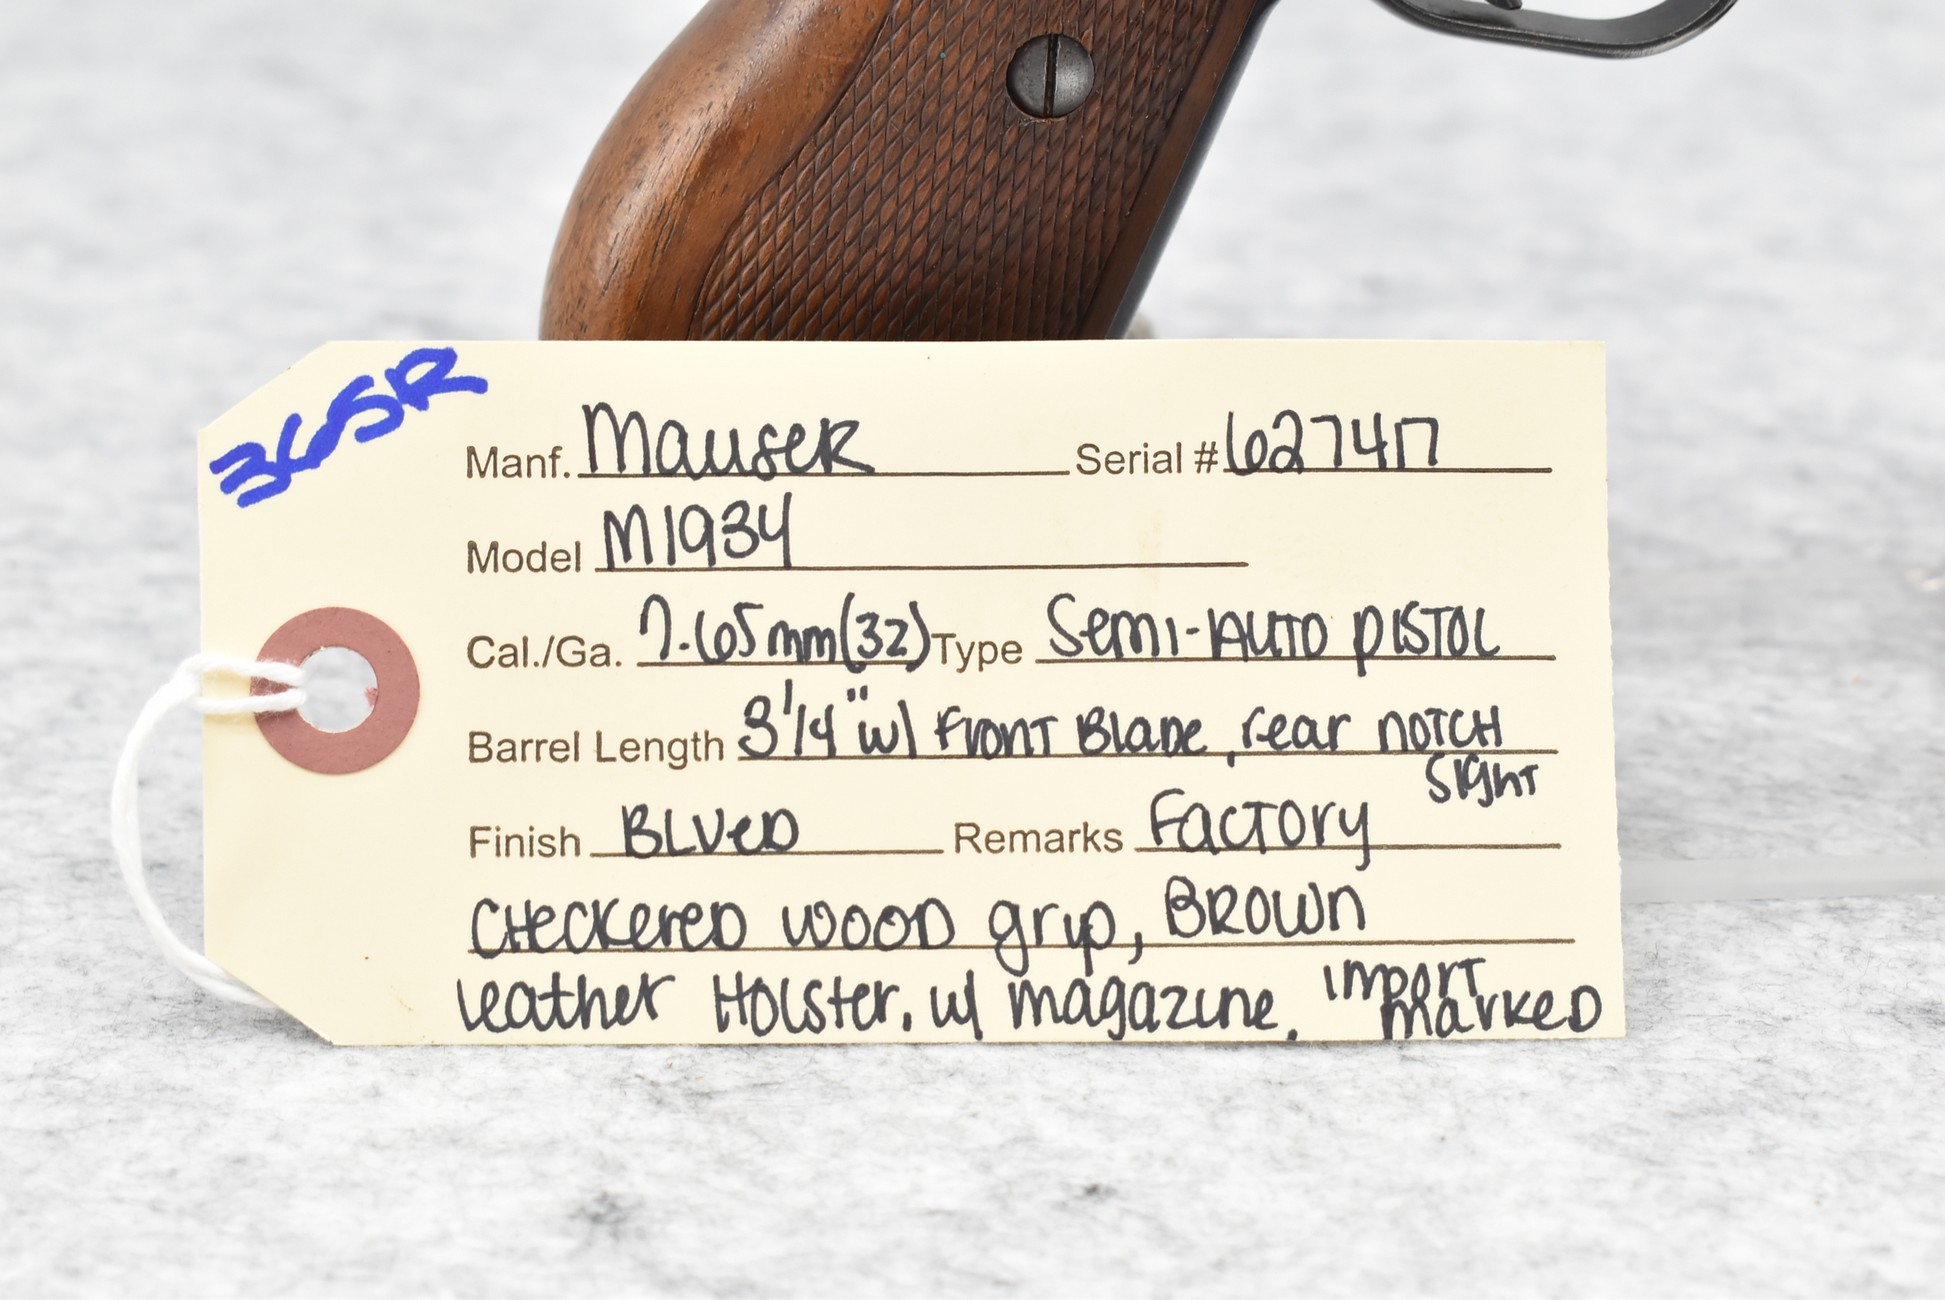 365R
Manf. Mauser Serial # 62747
Model M1934
Cal./Ga. 7.65mm(32) Type Semi-Auto Pistol
Barrel Length 3 1/4" w/ Front Blade, rear notch
sight
Finish Blued Remarks Factory
Checkered wood grip, Brown
leather Holster, w/ magazine, import
marked